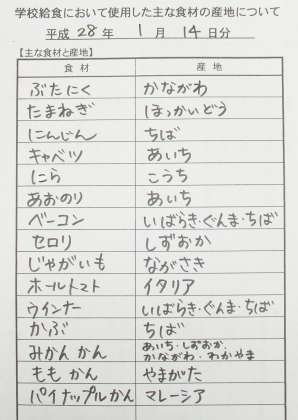 学校給食において使用した主な食材の産地について
平成 28 年 1 月 14 日分
【主な食材と産地】
食材 産地
ぶたにく かながわ
たまねぎ ほっかいどう
にんじん ちば
キャベツ あいち
にら こうち
あおのり あいち
ベーコン いばらき・ぐんま・ちば
セロリ しずおか
じゃがいも ながさき
ホールトマト イタリア
ウインナー いばらき・ぐんま・ちば
かぶ ちば
みかんかん あいち・しずおか・
かながわ・わかやま
ももかん やまがた
パイナップルかん マレーシア